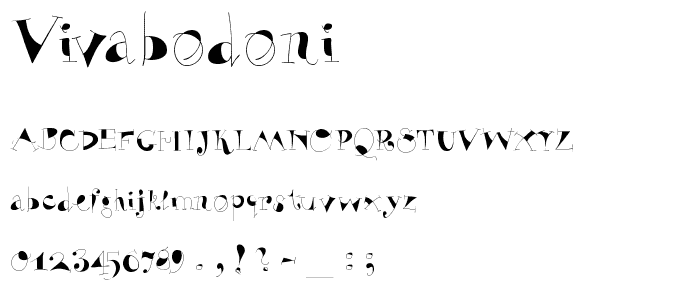 Vivabodoni
ABCDEFGHIJKLMNOPQRSTUVWXYZ
abcdefghijklmnopqrstuvwxyz
0123456789 . , ! ? - _ : ;